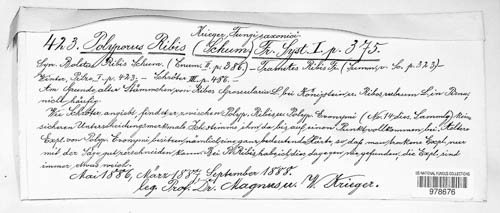 Krieger, Fungi saxonici.
423. Polyporus Ribis (Schum.) Fr. Syst. I. p. 375.
Syn. Boletus Ribis Schum. (Enum. II. p. 386.) — Trametes Ribis Fr. (Summ. v. Sc. p. 323) —
Winter, Pilze I. p. 423. — Schröter III. p. 486. —
Am Grunde alter Stämmchen von Ribes Grossularia L. bei Königstein, an Ribes rubrum L. in
nicht häufig.
Wie Schröter angiebt, findet er zwischen Polyp. Ribis u. Polyp. Evonymi (No. 14 dies. Samml.) kein
sicheren Unterscheidungsmerkmale. Ich stimme ihm da, bis auf einen Punkt vollkommen bei. Aeltere
Expl. von Polyp. Evonymi besitzen nämlich eine ganz bedeutende Härte, so daß man trockene Expl. nur
mit der Säge zerschneiden kann. Bei P. Ribis habe ich dies dagegen nie gefunden, die Expl. sind
immer etwas weich.
Mai 1886, März 1887, September 1888.
leg. Prof. Dr. Magnus u. W. Krieger.
US NATIONAL FUNGUS COLLECTIONS
978676